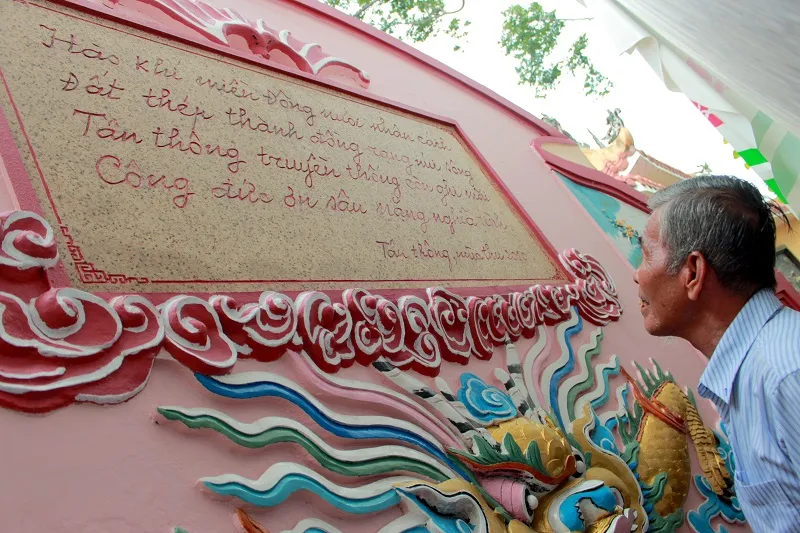 Hào khí miền Đông nước nhân cách
Đất thép thành đồng rạng núi sông
Tân thông truyền thống còn ghi mãi
Công đức ơn sâu nặng nghĩa tình
Tân thông, mùa thu